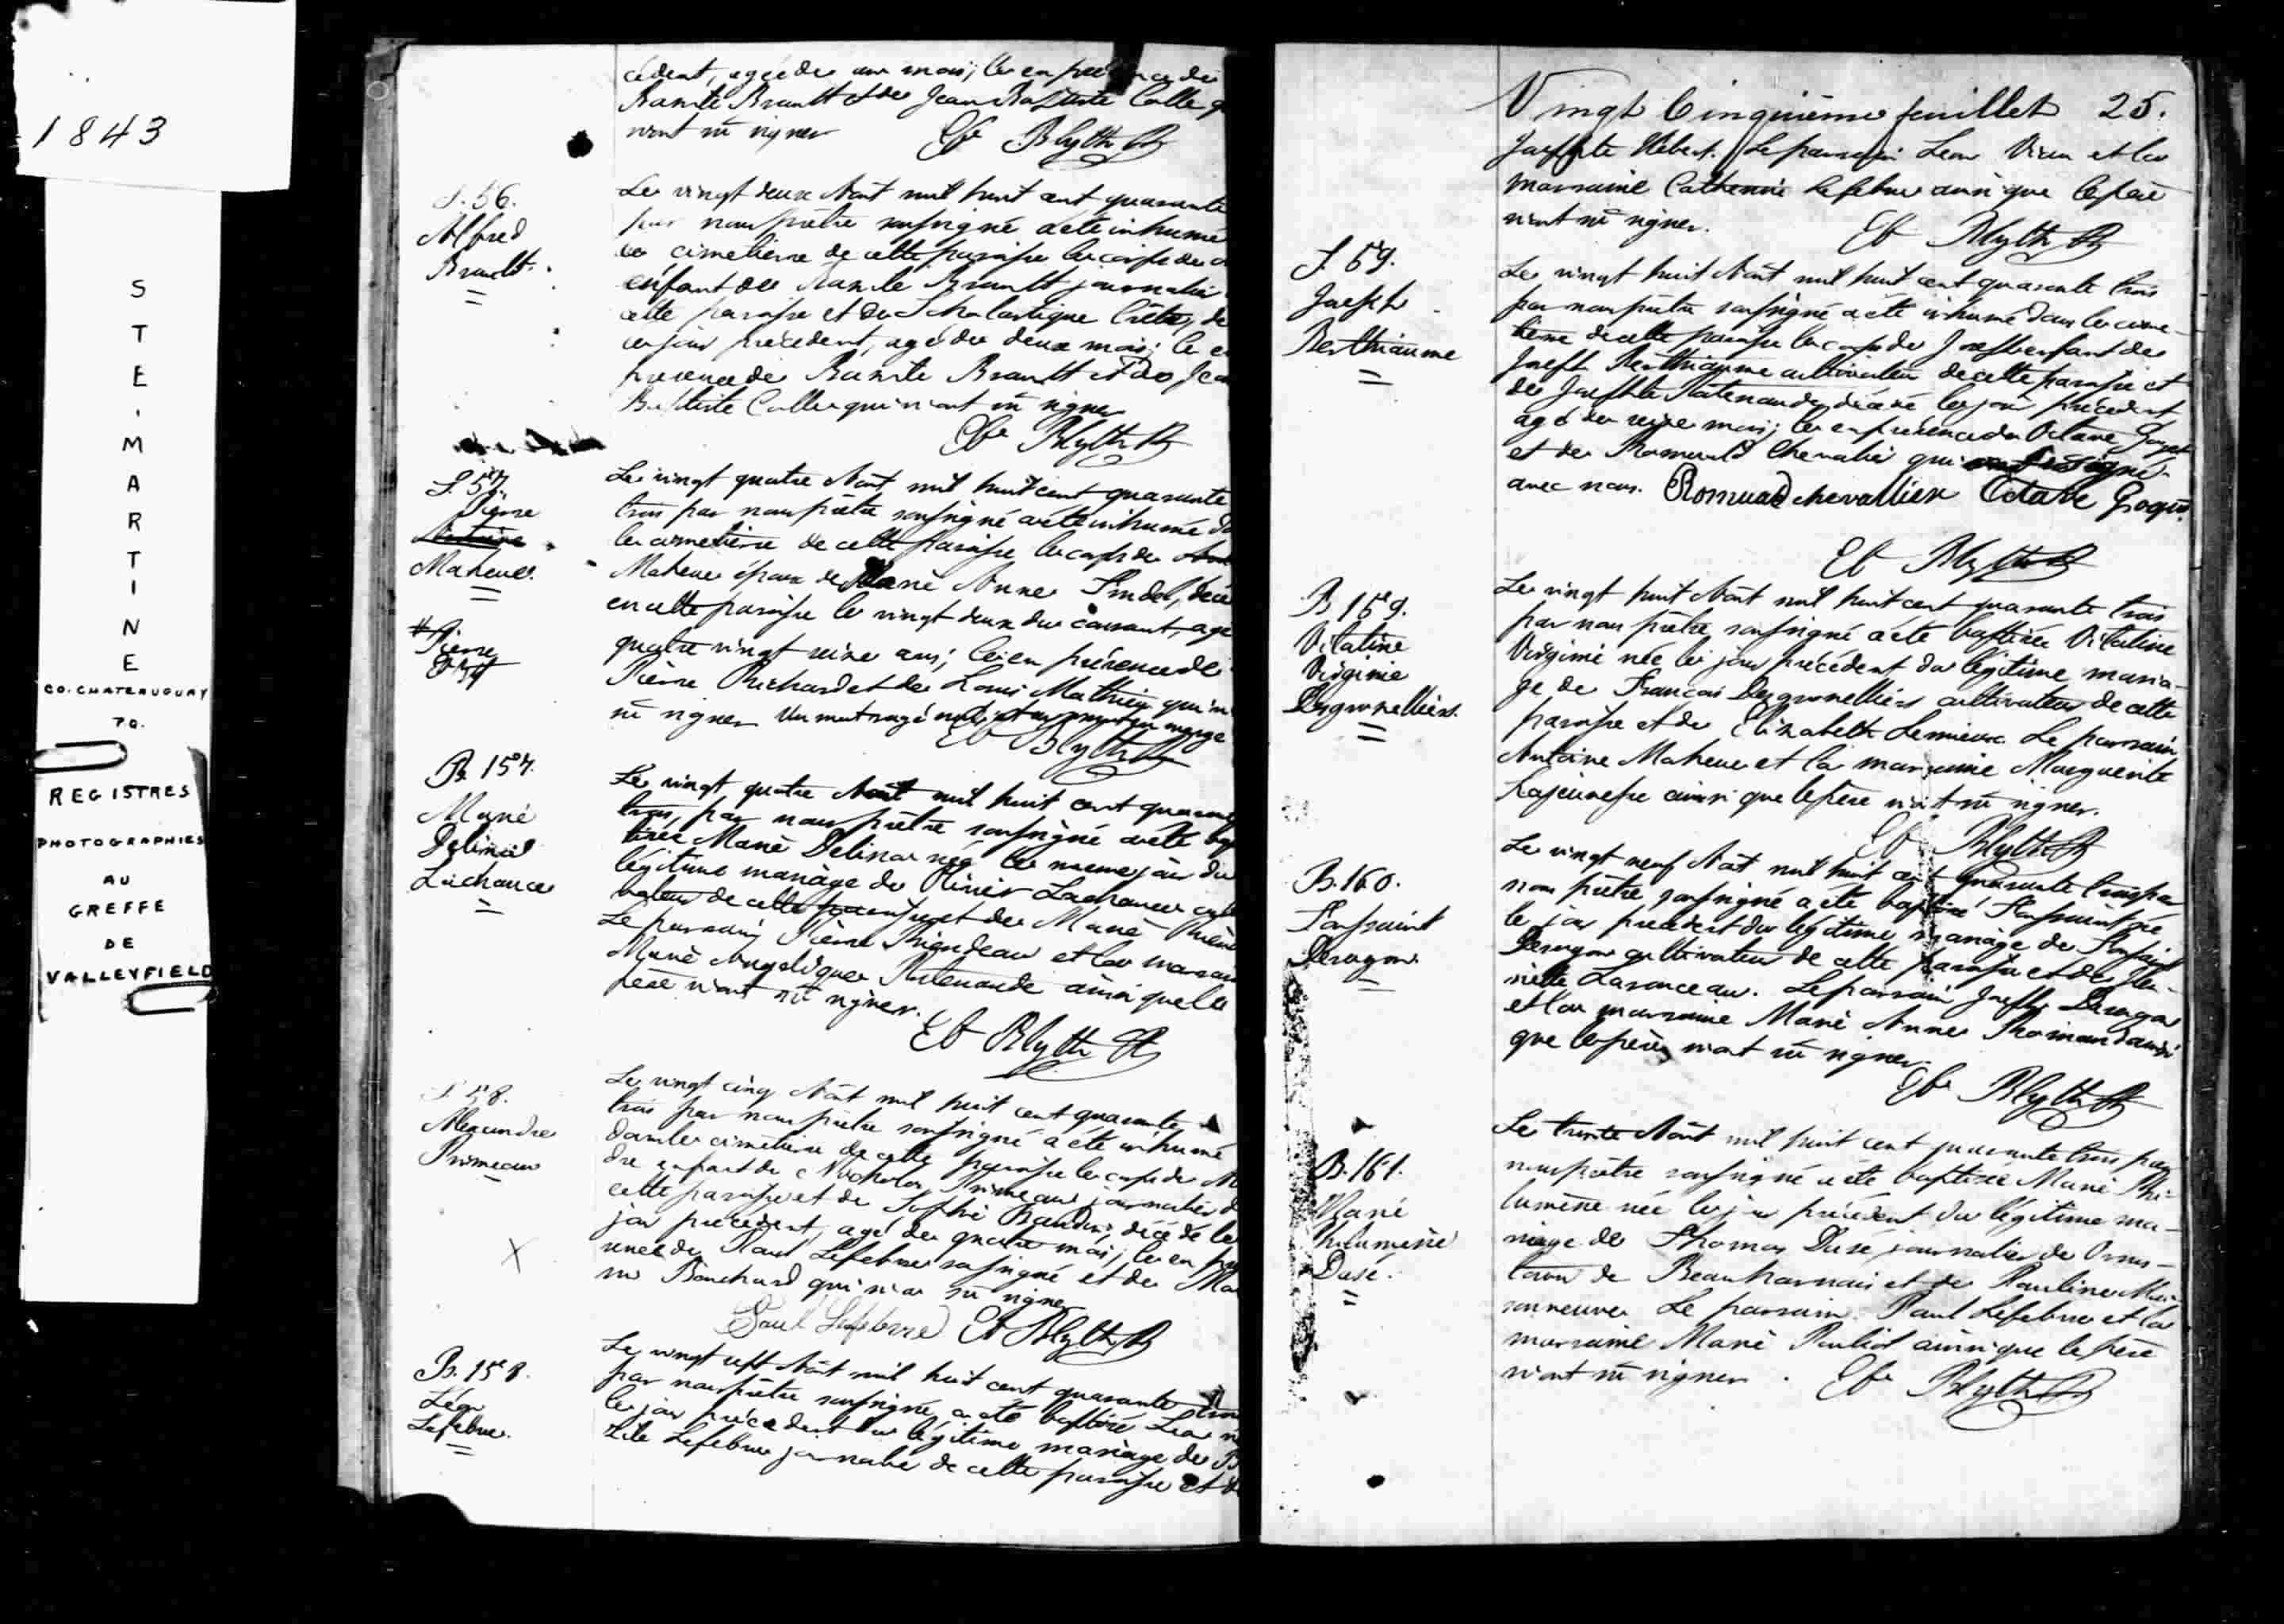 1843
STE-MARTINE
CO. CHATEAUGUAY
PQ.
REGISTRES
PHOTOGRAPHIES
AU
GREFFE
DE
VALLEYFIELD
cédent, agée de un mois; Ce en présence de
Brault et de Jean Baptiste Calle
n'ont sû signer Eb Blyth Ptre
S. 56.
Alfred
Brault.
Le vingt deux Août mil huit cent quarante
par nous prêtre soussigné a été inhumé
le cimetiere de cette paroisse le corps de
enfant de Brault journalier
cette paroisse et de Scholastique
le jour précédent, agé de deux mois; Ce en
présence de Brault et de Jean
Baptiste Calle qui n'ont sû signer
Eb Blyth Ptre
S. 57.
Pierre
Antoine
Maheue.
Pierre
Le vingt quatre Août mil huit cent quarante
trois par nous prêtre soussigné a été inhumé
le cimetiere de cette paroisse le corps de
Maheue époux de Marie Anne
en cette paroisse le vingt deux du courant, agé
quatre vingt seize ans; Ce en présence de
Pierre Richard et de Louis Mathieu qui n'
sû signer Un mot rayé nul en marge
Eb Blyth Ptre
B. 157.
Marie
Delina
Lachance
Le vingt quatre Août mil huit cent quarante
trois, par nous prêtre soussigné a été bap
tisée Marie Delina née le meme jour du
légitime mariage de Olivier Lachance culti
vateur de cette paroisse et de Marie
Le parrain Pierre et la marrai
Marie Angelique Patenaude ainsi que le
père n'ont sû signer.
Eb Blyth Ptre
S. 58.
Alexandre
Primeau
Le vingt cinq Août mil huit cent quarante
trois par nous prêtre soussigné a été inhumé
dans le cimetiere de cette paroisse le corps de Al
dre enfant de Nicholas Primeau journalier d
cette paroisse et de Sophie décédé le
jour précédent, agé de quatre mois; Ce en pré
sence de Paul Lefebvre soussigné et de
Bouchard qui n'a sû signer
Paul Lefebvre Eb Blyth Ptre
B. 158.
Léon
Lefebvre.
Le vingt sept Août mil huit cent quarante trois
par nous prêtre soussigné, a été baptisé Léon né
le jour précédent du légitime mariage de B
Lefebvre journalier de cette paroisse et de
Vingt Cinquième feuillet 25.
Josephte Hébert. Le parrain Leon et la
marraine Catherine Lefebvre ainsi que le père
n'ont sû signer. Eb Blyth Ptre
S. 59.
Joseph
Berthiaume
Le vingt huit Août mil huit cent quarante trois
par nous prêtre soussigné a été inhumé dans le cime-
tiere de cette paroisse le corps de Joseph enfant de
Joseph Berthiaume cultivateur de cette paroisse et
de Josephte Patenaude, décédé le jour précédent
agé de seize mois; Ce en présence de Octave
et de Romuald Chevalier qui ont signé
avec nous. Romuald chevallier Octave
Eb Blyth Ptre
B 159.
Vitaline
Virginie
Desgroseilliers.
Le vingt huit Août mil huit cent quarante trois
par nous prêtre soussigné a été baptisée Vitaline
Virginie née le jour précédent du légitime maria-
ge de François Desgroseilliers cultivateur de cette
paroisse et de Elizabeth Lemieux. Le parrain
Antoine Maheue et la marraine Marguerite
Lajeunesse ainsi que le père n'ont sû signer.
Eb Blyth Ptre
B. 160.
Toussaint
Deragon
Le vingt neuf Août mil huit cent quarante trois par
nous prêtre soussigné a été baptisé Toussaint né
le jour précédent du légitime mariage de Toussaint
Derragon cultivateur de cette paroisse et de Hen-
riette. Le parrain Joseph Deragon
et la marraine Marie Anne ainsi
que le père n'ont sû signer
Eb Blyth Ptre
B. 161.
Marie
Philumène
Dusé.
Le trente Août mil huit cent quarante trois par
nous prêtre soussigné a été baptisée Marie Phi-
lumène née le jour précédent du légitime ma-
riage de Thomas Dusé journalier de Orms-
town de Beauharnais et de Pauline Mai-
sonneuve. Le parrain Paul Lefebvre et la
marraine Marie Pouliot ainsi que le père
n'ont sû signer. Eb Blyth Ptre